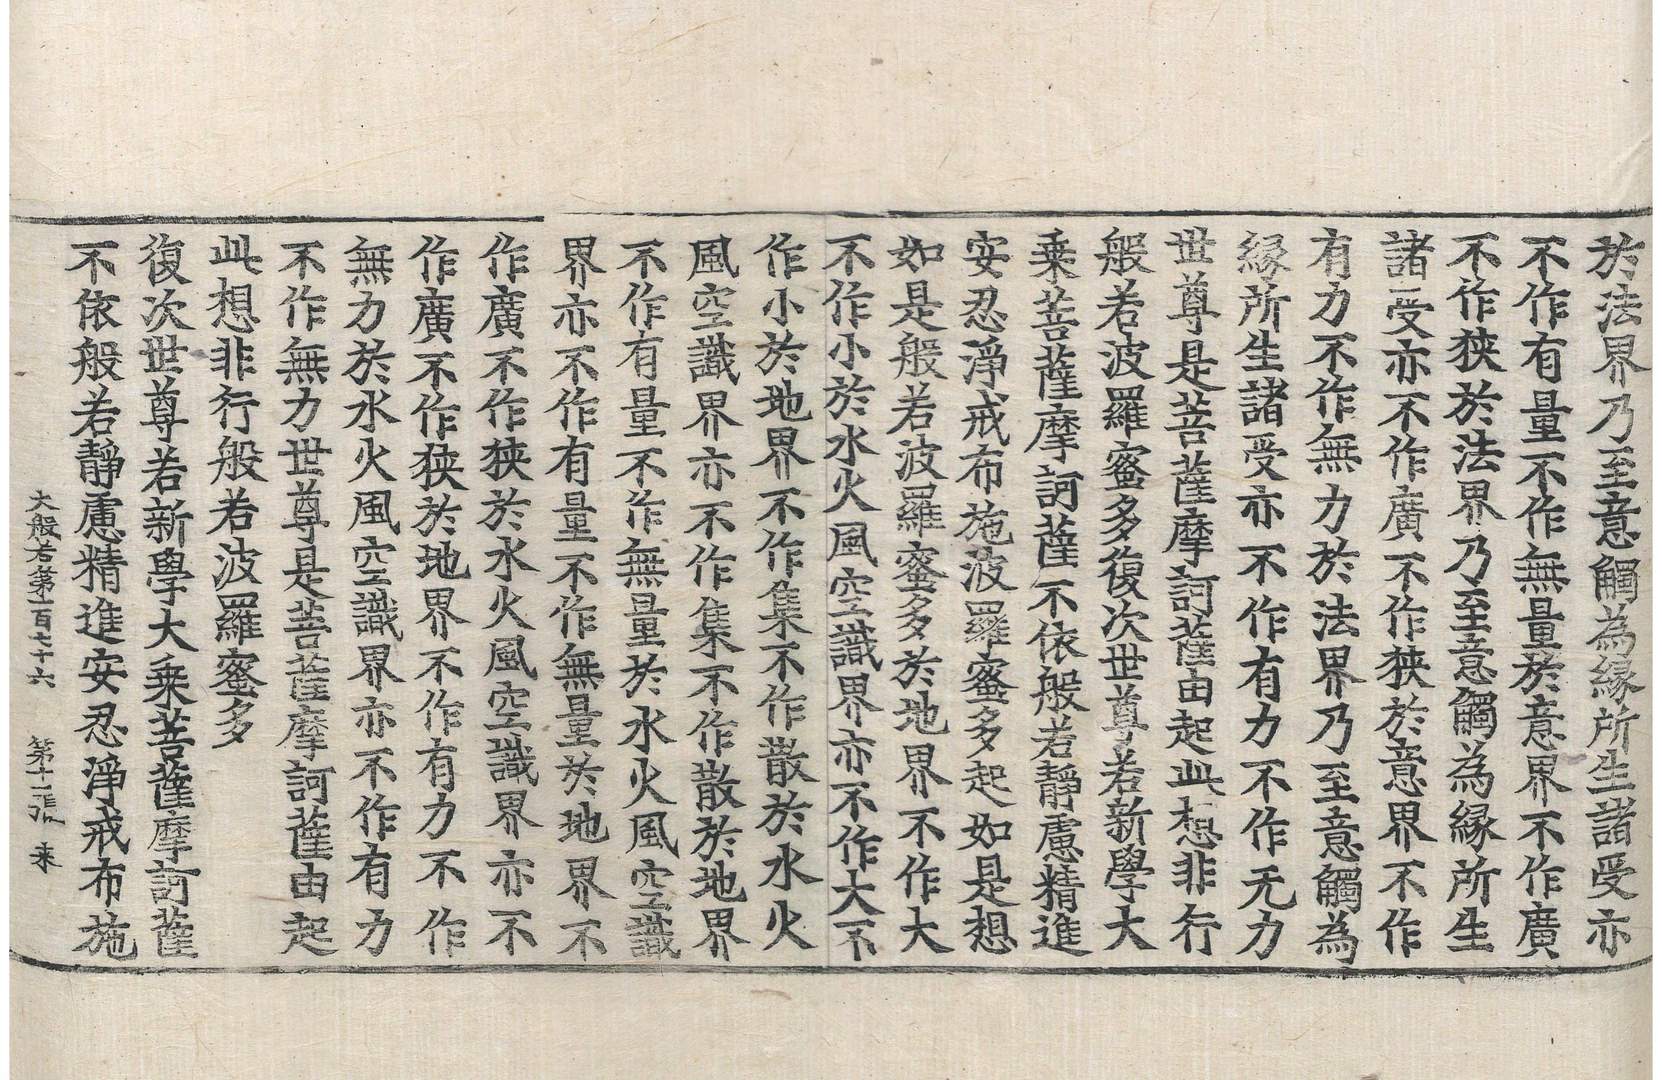 於法界乃至意觸為縁所生諸受亦
不作有量不作無量於意界不作廣
不作狹於法界乃至意觸為縁所生
諸受亦不作廣不作狹於意界不作
有力不作無力於法界乃至意觸為
縁所生諸受亦不作有力不作无力
世尊是菩薩摩訶薩由起此想非行
般若波羅蜜多復次世尊若新學大
乗菩薩摩訶薩不依般若靜慮精進
安忍淨戒布施波羅蜜多起如是想
如是般若波羅蜜多於地界不作大
不作小於水火風空識界亦不作大不
作小於地界不作集不作散於水火
風空識界亦不作集不作散於地界
不作有量不作無量於水火風空識
界亦不作有量不作無量於地界不
作廣不作狹於水火風空識界亦不
作廣不作狹於地界不作有力不作
無力於水火風空識界亦不作有力
不作無力世尊是菩薩摩訶薩由起
此想非行般若波羅蜜多
復次世尊若新學大乗菩薩摩訶薩
不依般若靜慮精進安忍淨戒布施
大般若第一百七十六 第十二張 来